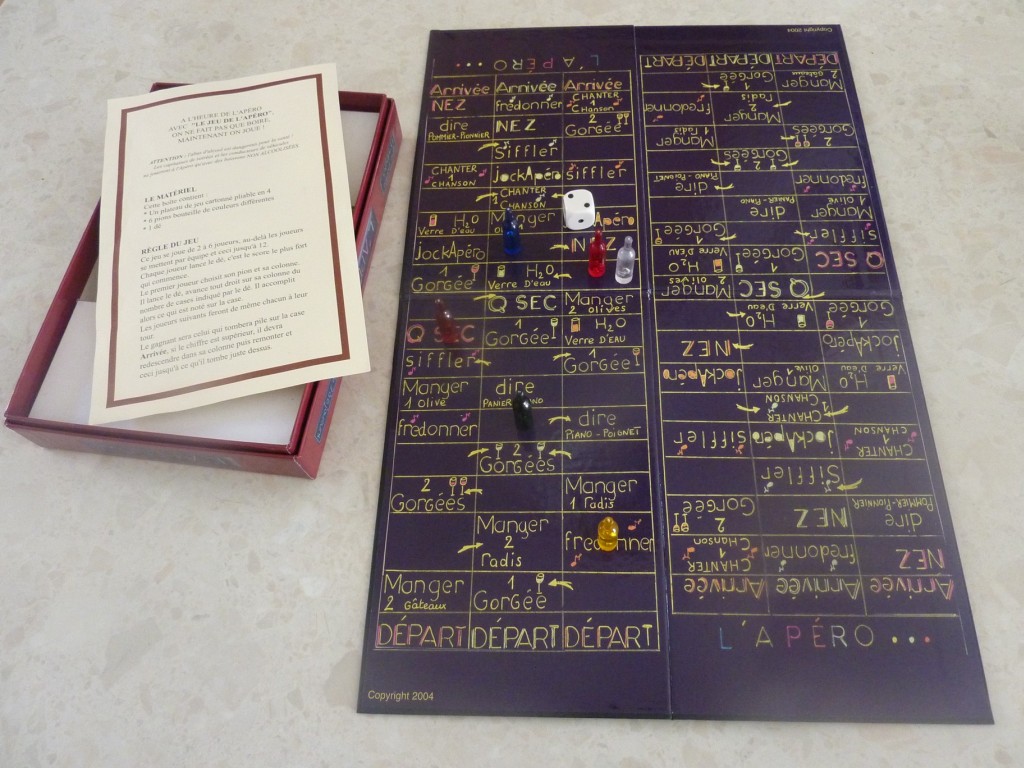 A L'HEURE DE L'APÉRO
AVEC "LE JEU DE L'APÉRO",
ON NE FAIT PAS QUE BOIRE,
MAINTENANT ON JOUE !
ATTENTION : l'abus d'alcool est dangereux pour la santé !
LE MATÉRIEL
Cette boîte contient :
• Un plateau de jeu cartonné pliable en 4
• 6 pions bouteille de couleurs différentes
• 1 dé
RÈGLE DU JEU
Ce jeu se joue de 2 à 6 joueurs, au-delà les joueurs
se mettent par équipe et ceci jusqu'à 12.
Chaque joueur lance le dé, c'est le score le plus fort
qui commence.
Le premier joueur choisit son pion et sa colonne.
Il lance le dé, avance tout droit sur sa colonne du
nombre de cases indiqué par le dé. Il accomplit
alors ce qui est noté sur la case.
Les joueurs suivants feront de même chacun à leur
tour.
Le gagnant sera celui qui tombera pile sur la case
Arrivée, si le chiffre est supérieur, il devra
redescendre dans sa colonne puis remonter et
ceci jusqu'à ce qu'il tombe juste dessus.
L'APÉRO ...
Arrivée Arrivée Arrivée
NEZ fredonner CHANTER 1 Chanson
dire POMMIER-PIONNIER NEZ 2 Gorgées
Siffler
CHANTER 1 CHANSON jockApéro siffler
CHANTER 1 CHANSON
H2O Verre D'eau Manger
jockApéro NEZ
1 Gorgée H2O Verre D'eau
Q SEC Manger 2 olives
Q SEC 1 Gorgée H2O Verre D'EAU
siffler 1 Gorgée
Manger 1 olive dire
fredonner dire PIANO-POIGNET
2 Gorgées
2 Gorgées Manger 1 radis
Manger 2 radis fredonner
Manger 2 Gâteaux 1 Gorgée
DÉPART DÉPART DÉPART
Copyright 2004
L'APÉRO ...
Arrivée Arrivée Arrivée
NEZ fredonner CHANTER 1 Chanson
dire POMMIER-PIONNIER NEZ 2 Gorgée
Siffler
CHANTER 1 CHANSON jockApéro siffler
CHANTER 1 CHANSON
H2O Verre D'eau Manger 1 olive jockApéro
jockApéro NEZ
1 Gorgée H2O Verre D'eau
Q SEC Manger 2 olives
Q SEC 1 Gorgée H2O Verre D'EAU
siffler 1 Gorgée
Manger 1 olive dire PANIER-PIANO
fredonner dire PIANO-POIGNET
2 Gorgées
2 Gorgées Manger 1 radis
Manger 2 radis fredonner
Manger 2 Gâteaux 1 Gorgée
DÉPART DÉPART DÉPART
Copyright 2004